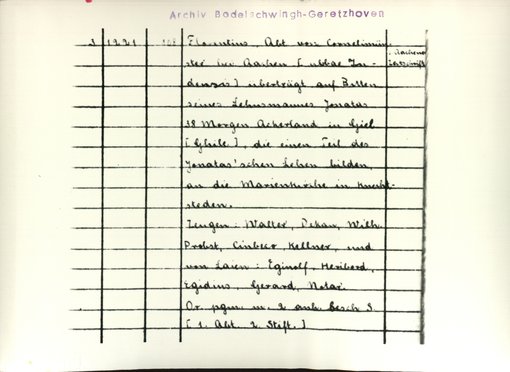 Archiv Bodelschwingh-Geretzhoven
1 1221 Florentius, Abt von Cornelimün-
ster bei Aachen [abbas In-
denzis] überträgt auf Bitten
seines Lehnsmannes Jonatas
18 Morgen Ackerland in Giel
[Ghile], die einen Teil des
Jonatas'schen Lehen bilden,
an die Marienkirche in Knecht-
steden.
Zeugen: Walter, Dekan, Wilh.
Probst, Kellner, und
von Laien: Eginolf, Heriberd,
Egidius, Gerard, Notar.
Or. pgm. m. 2 anh. besch. S.
[1. Abt. 2. Stift.]
Aachener
Zeitschrift